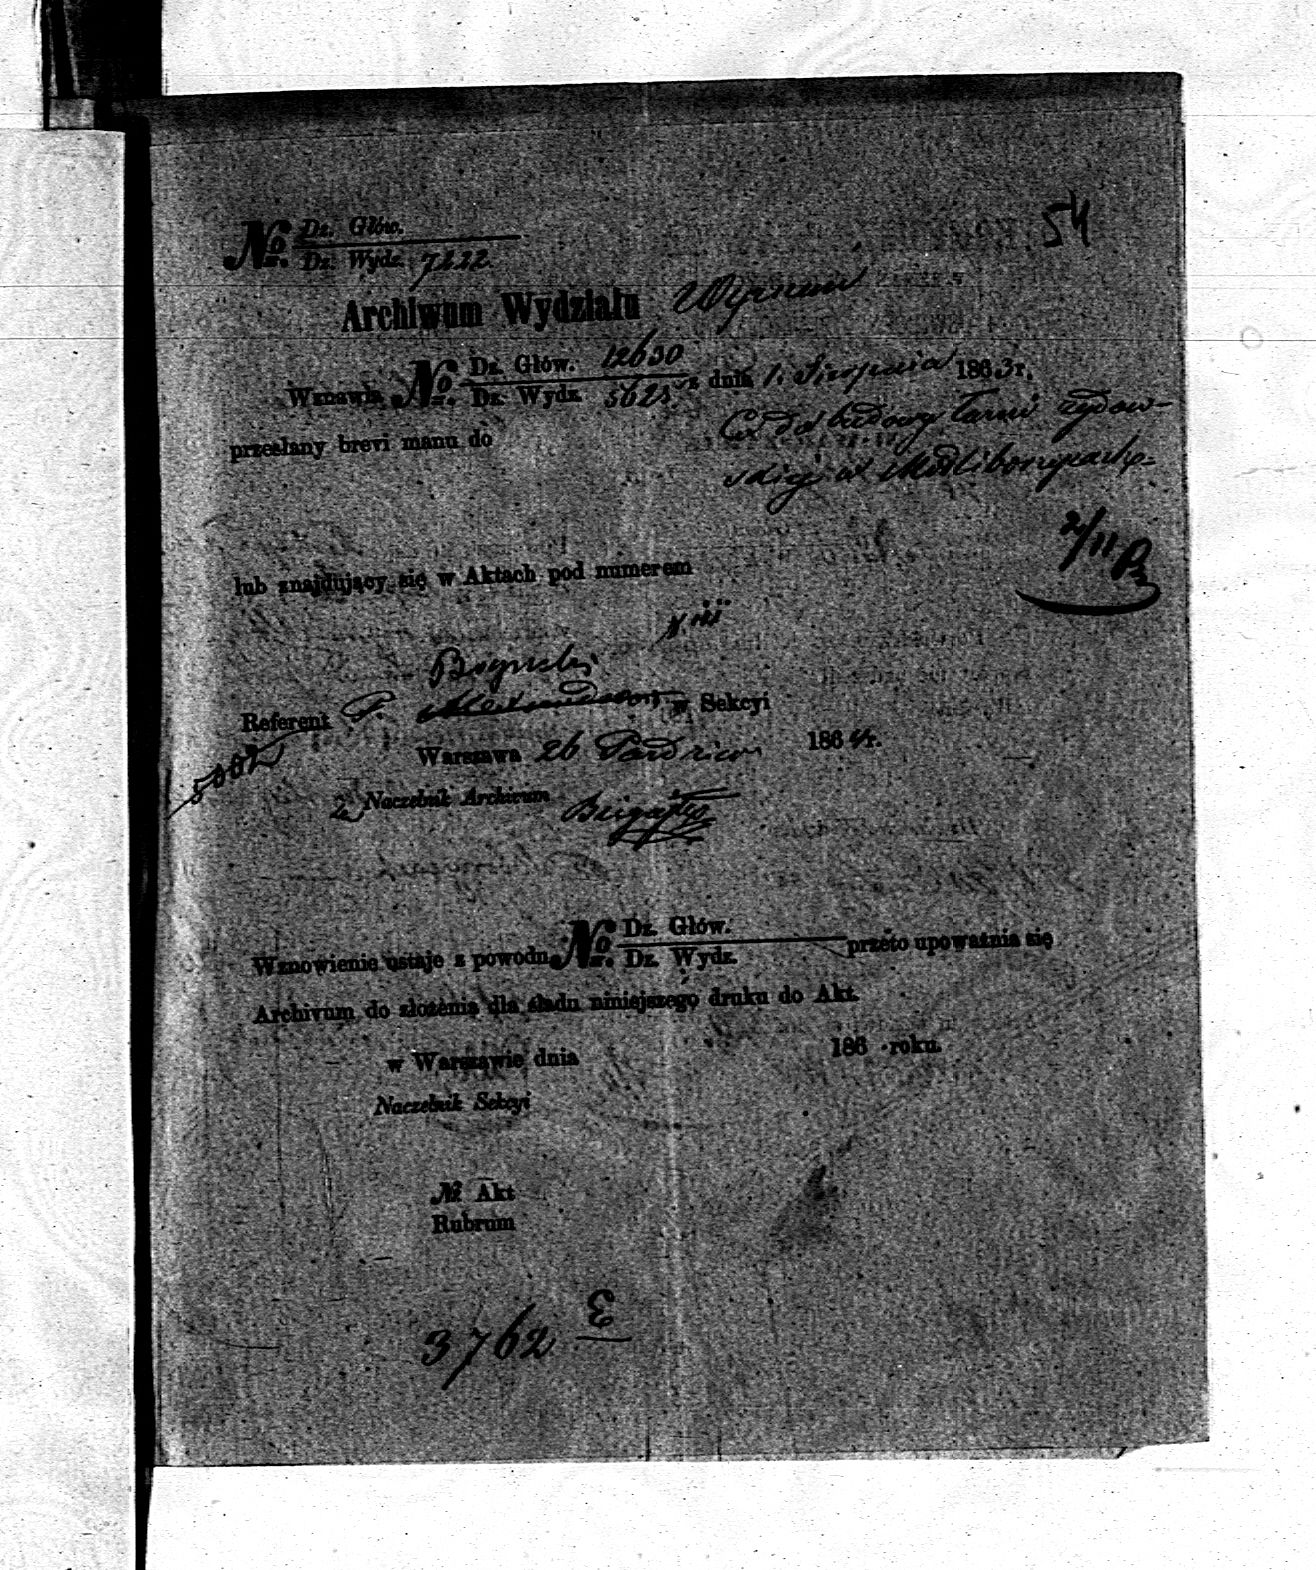 54
No. Dz. Głów.
Dz. Wydz. 7222.
Archiwum Wydziału Wyznań
Wznawia No. Dz. Głów. 12630
Dz. Wydz. 5625 z dnia 1. Sierpnia 1863 r.
przesłany brevi manu do
Co do budowy Łazni żydow-
skiej w Modliborzycach
2/11
lub znajdujący się w Aktach pod numerem
Referent P. w Sekcyi
Warszawa 26 Paździer 1864 r.
Naczelnik Archivum
Wznowienie ustaje z powodu No. Dz. Głów.
Dz. Wydz. przeto upoważnia się
Archivum do złożenia dla śladu niniejszego druku do Akt.
w Warszawie dnia 186 roku.
Naczelnik Sekcyi
№ Akt
Rubrum
3762 E